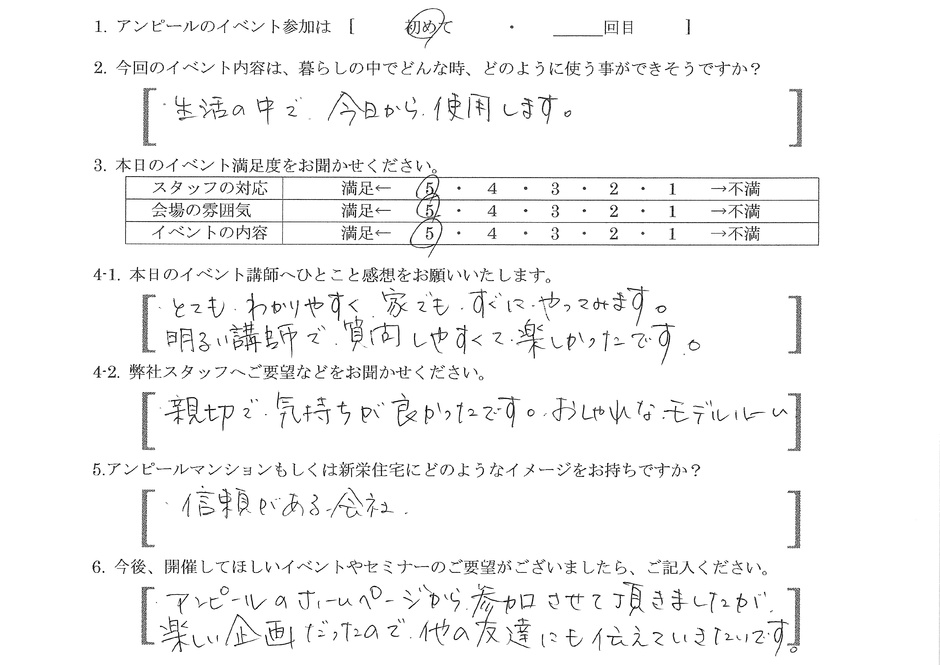 1. アンピールのイベント参加は [ 初めて ・ _____回目 ]
2. 今回のイベント内容は、暮らしの中でどんな時、どのように使う事ができそうですか？
・生活の中で、今日から、使用します。
3. 本日のイベント満足度をお聞かせください。
スタッフの対応 満足← 5 ・ 4 ・ 3 ・ 2 ・ 1 →不満
会場の雰囲気 満足← 5 ・ 4 ・ 3 ・ 2 ・ 1 →不満
イベントの内容 満足← 5 ・ 4 ・ 3 ・ 2 ・ 1 →不満
4-1. 本日のイベント講師へひとこと感想をお願いいたします。
・とても、わかりやすく、家でも、すぐに、やってみます。
明るい講師で、質問しやすくて、楽しかったです。
4-2. 弊社スタッフへご要望などをお聞かせください。
・親切で、気持ちが良かったです。おしゃれな、モデルルーム
5.アンピールマンションもしくは新栄住宅にどのようなイメージをお持ちですか？
・信頼がある会社.
6. 今後、開催してほしいイベントやセミナーのご要望がございましたら、ご記入ください。
・アンピールのホームページから、参加させて頂きましたが、
楽しい企画だったので、他の友達にも伝えていきたいです。